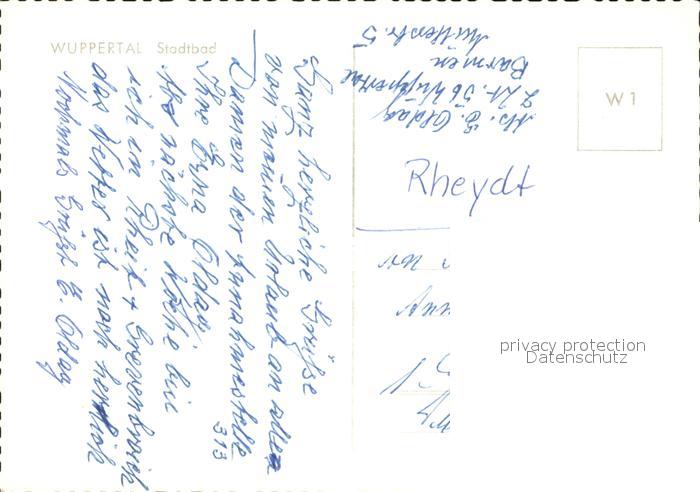 WUPPERTAL Stadtbad
Ganz herzliche Grüße
von meinen Urlaub an allen
Damen der Annahmestelle
313
Ihre Erna Oldag
Ab nächste Woche bin
ich in Rheit + Grevenbroich
das Wetter ist noch herrlich
Nochmals Grüßt E. Oldag
Abs. E. Oldag
z. Zt. 56 Wuppertal
Barmen
str. 5
W 1
Rheydt
privacy protection
Datenschutz